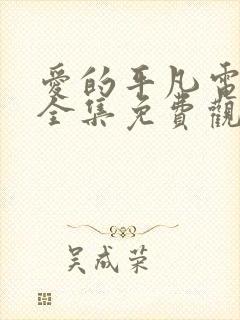 愛的平凡電
全集免費觀
吴成荣